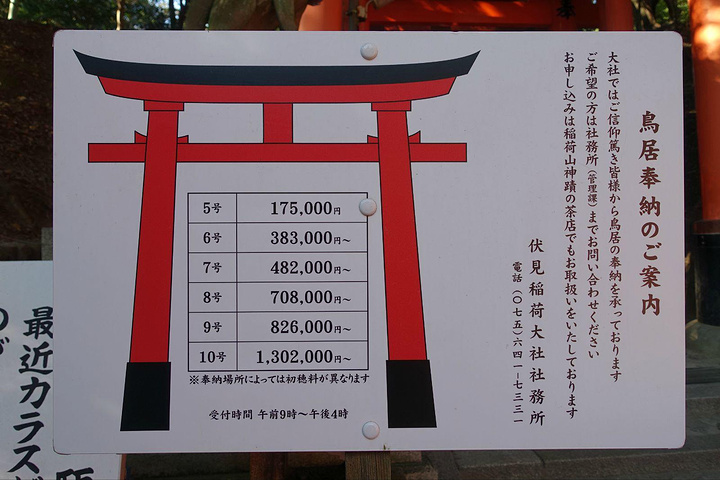 鳥居奉納のご案内
大社ではご信仰篤き皆様から鳥居の奉納を承っております
ご希望の方は社務所(管理課)までお問い合わせください
お申し込みは稲荷山神蹟の茶店でもお取扱いをいたしております
伏見稲荷大社社務所
電話(〇七五)六四一-七三三一
5号 175,000円
6号 383,000円～
7号 482,000円～
8号 708,000円～
9号 826,000円～
10号 1,302,000円～
※奉納場所によっては初穂料が異なります
受付時間 午前9時～午後4時
最近カラス